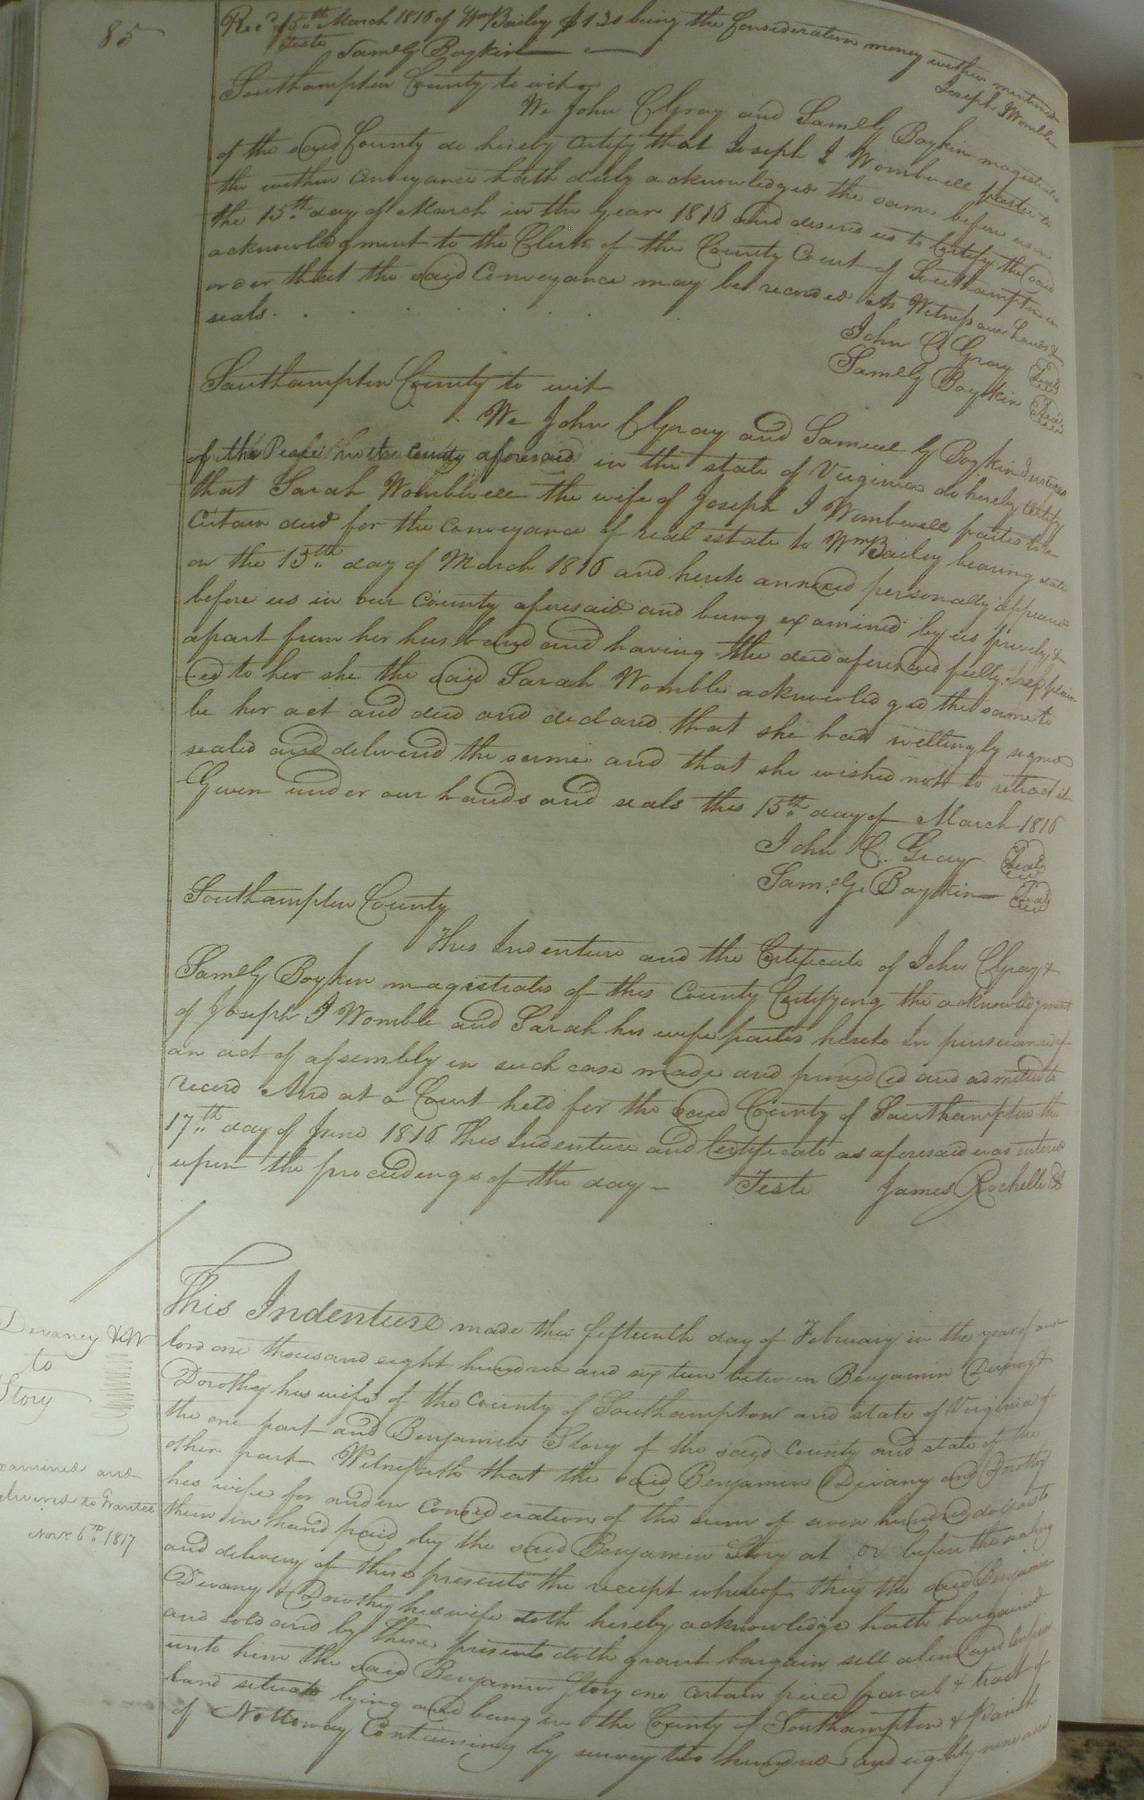 85
Rec.d 15th March 1816 of Wm Bailey $120 being the Consideration money within mentioned
Teste Saml G Boykin Joseph I Womble
Southampton County to wit
We John C Gray and Saml G Boykin magistrates
of the said County do hereby certify that Joseph I Wombwell partie to
the within Conveyance hath duly acknowledged the same before us on
the 15th day of March in the year 1816 and desired us to Certify the said
acknowledgment to the Clerk of the County Court of Southampton in
order that the said Conveyance may be recorded As Witness our hands &
seals.
John C Gray Seal
Saml G Boykin Seal
Southampton County to wit
We John C Gray and Samuel G Boykin Justices
of the Peace in the County aforesaid in the state of Virginia do hereby certify
that Sarah Wombwell the wife of Joseph I Wombwell parties to a
Certain deed for the Conveyance of real estate to Wm Bailey bearing date
on the 15th day of March 1816 and hereto annexed personally appeared
before us in our County aforesaid and being examined by us privily &
apart from her husband and having the deed aforesaid fully explain
-ed to her she the said Sarah Womble acknowledged the same to
be her act and deed and declared that she had willingly signed
sealed and delivered the same and that she wished not to retract it
Given under our hands and seals this 15th day of March 1816
John C. Gray Seal
Saml G. Boykin Seal
Southampton County
This Indenture and the Certificate of John C Gray &
Saml G Boykin magistrates of this County Certifying the acknowledgment
of Joseph I Womble and Sarah his wife parties hereto In pursuance of
an act of assembly in such case made and provided and admitted to
record And at a Court held for the said County of Southampton the
17th day of June 1816 This Indenture and Certificate as aforesaid was entered
upon the proceedings of the day - Teste James Rochelle
Devaney & W
to
Story
Examined and
delivered to Grantee
Novr 6th 1817
This Indenture made this fifteenth day of February in the year of our
lord one thousand eight hundred and sixteen between Benjamin Devany &
Dorothy his wife of the County of Southampton and state of Virginia of
the one part and Benjamin Story of the said County and state of the
other part Witnesseth that the said Benjamin Devany and Dorothy
his wife for and in Consideration of the sum of seven hundred dollars to
them in hand paid by the said Benjamin Story at or before the sealing
and delivery of these presents the receipt whereof they the said Benjamin
Devany & Dorothy his wife doth hereby acknowledge hath bargained
and sold and by these presents doth grant bargain sell alien and Confirm
unto him the said Benjamin Story one certain piece parcel & tract of
land situate lying and being in the County of Southampton & Parish
of Nottoway Containing by survey two hundred and eighty nine acres